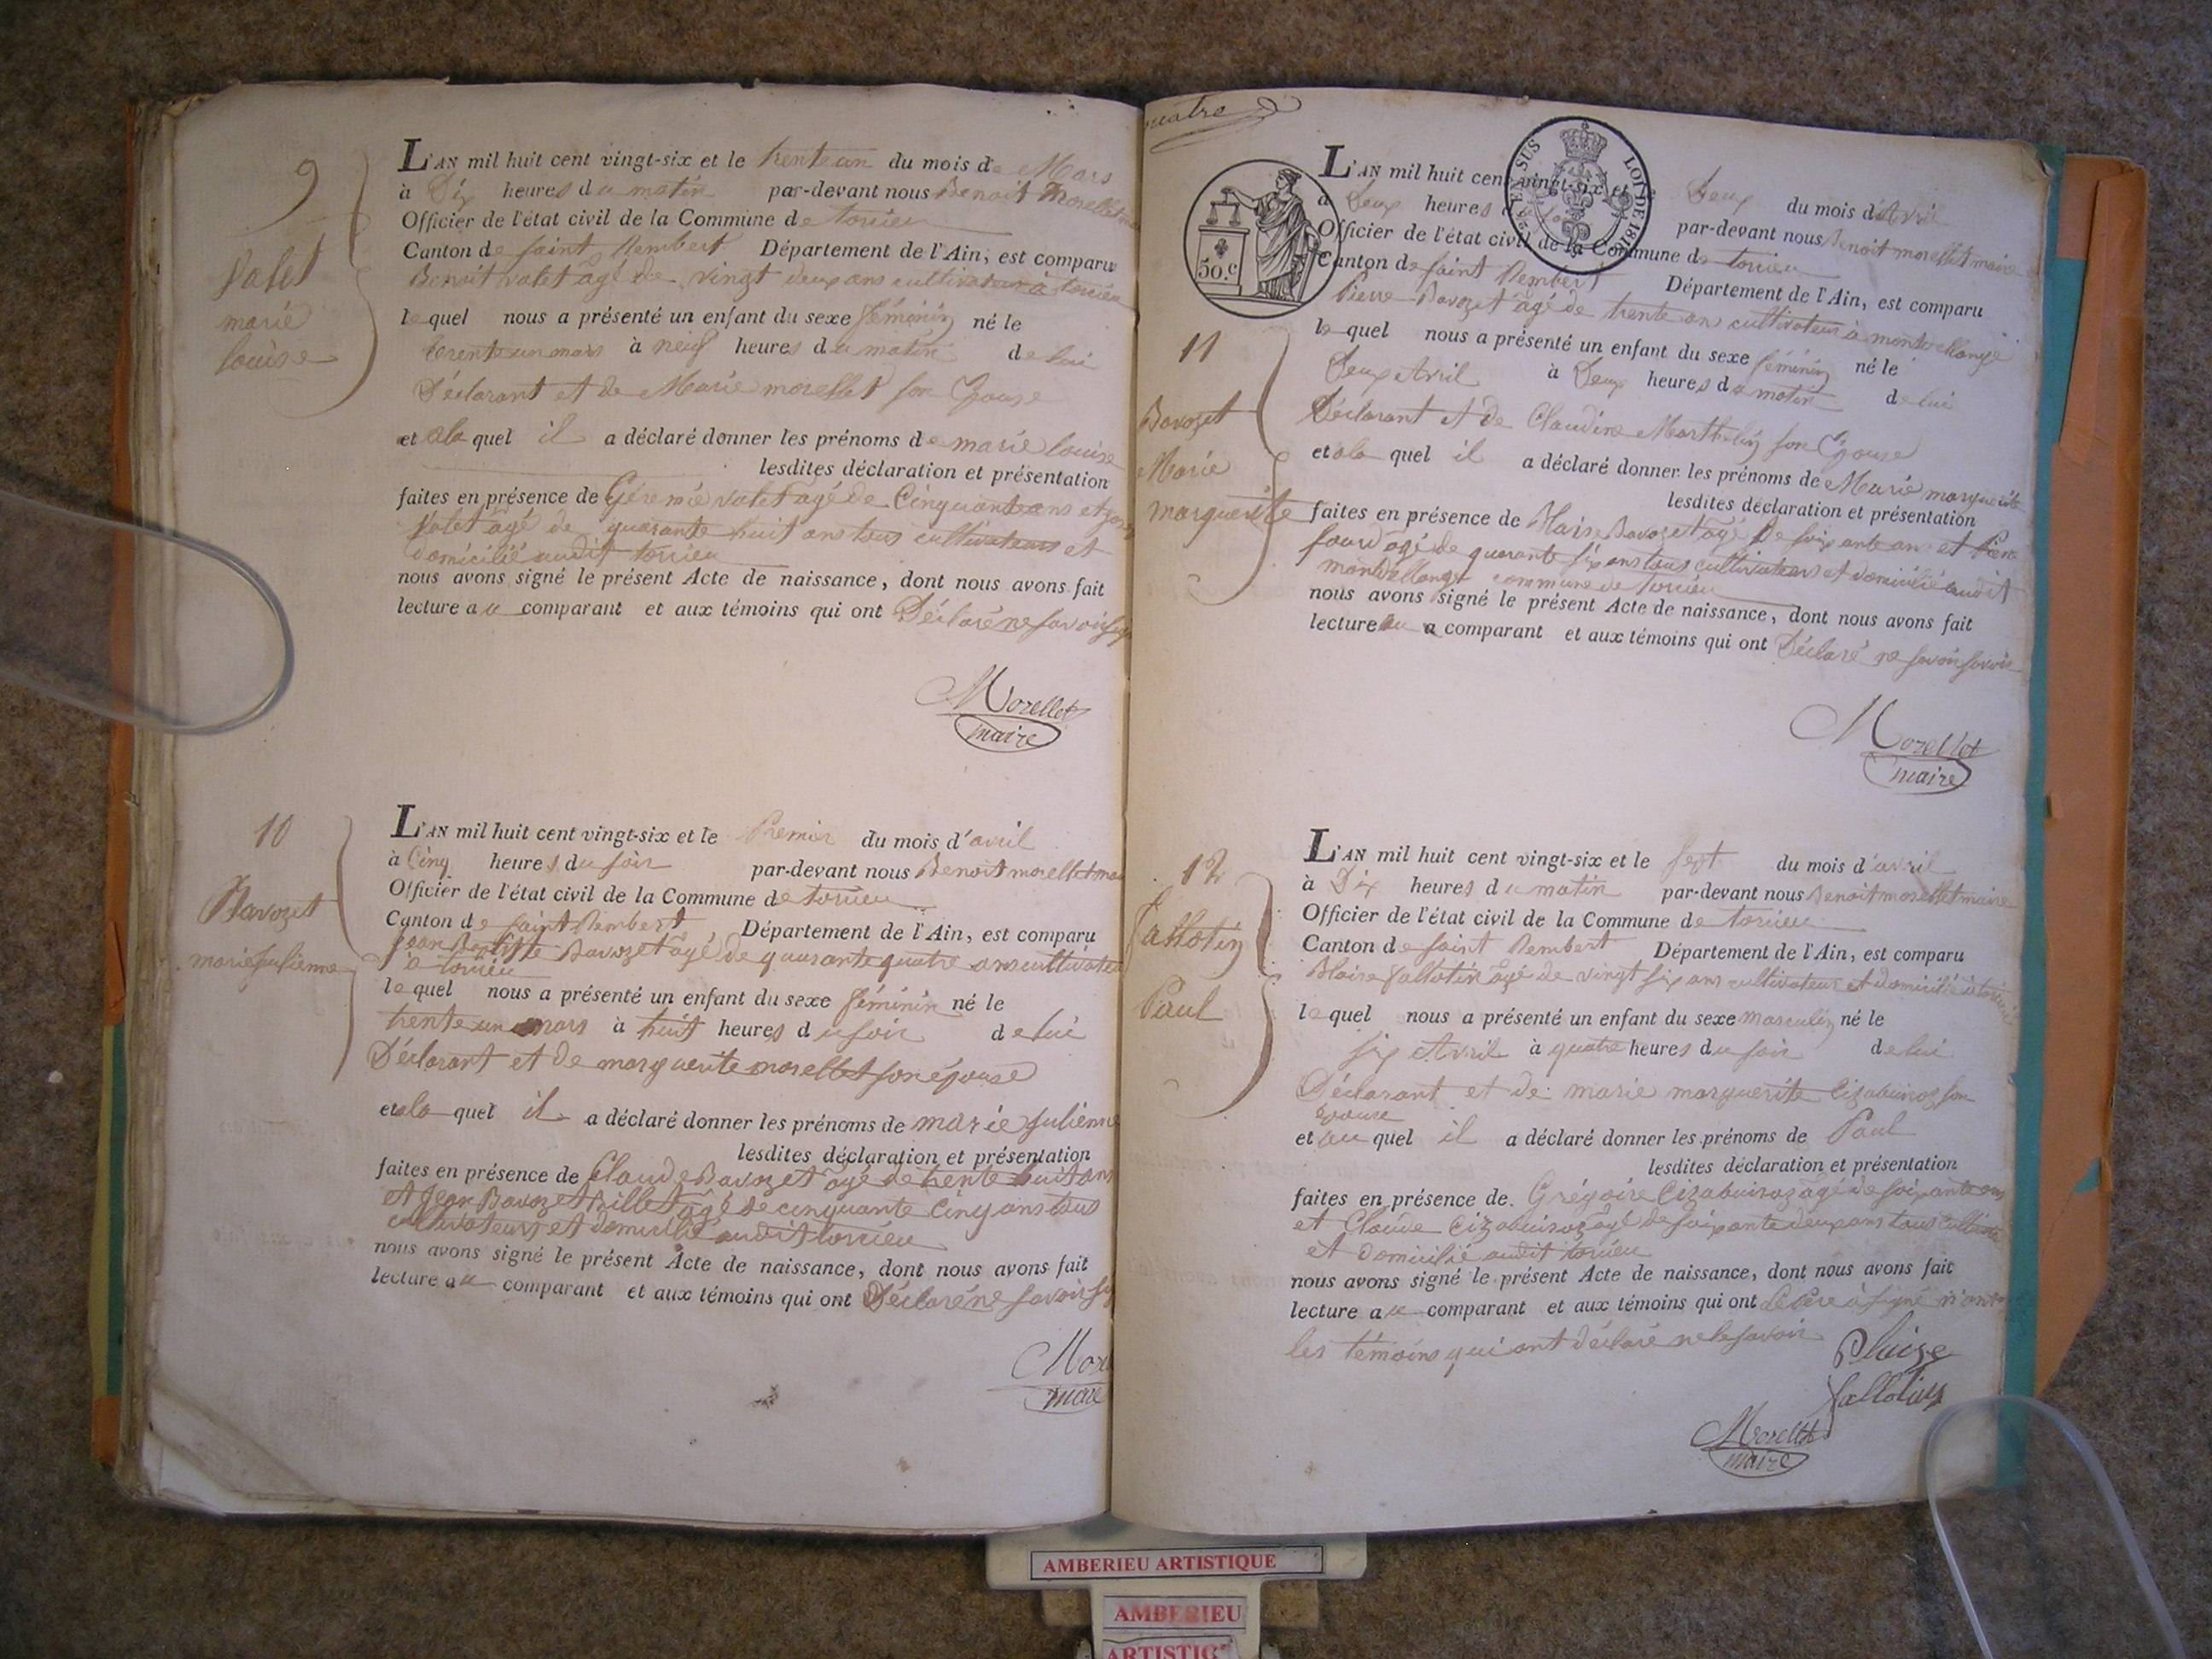 9
Valet
marie
louise
L'AN mil huit cent vingt-six et le trente un du mois de Mars
à Dix heures du matin par-devant nous Benoit Morellet
Officier de l'état civil de la Commune de torcieu
Canton de saint Rembert Département de l'Ain, est comparu
Benoit valet agé de vingt deux ans cultivateur à torcieu
lequel nous a présenté un enfant du sexe féminin né le
trente un mars à neuf heures du matin de lui
Déclarant et de Marie morellet son Epouse
et ala quel il a déclaré donner les prénoms de marie louise
lesdites déclaration et présentation
faites en présence de Géremie valet agé de Cinquante ans et
Valet âgé de quarante huit ans tous cultivateurs et
domicilié audit torcieu
nous avons signé le présent Acte de naissance, dont nous avons fait
lecture au comparant et aux témoins qui ont Déclaré ne savoir
Morellet
maire
10
Bavozet
marie julienne
L'AN mil huit cent vingt-six et le Premier du mois d'avril
à Cinq heures du soir par-devant nous Benoit morellet
Officier de l'état civil de la Commune de torcieu
Canton de saint Rembert Département de l'Ain, est comparu
jean Baptiste Bavozet âgé de quarante quatre ans cultivateur
à torcieu
lequel nous a présenté un enfant du sexe féminin né le
trente un mars à huit heures du soir de lui
Déclarant et de marguerite morellet son épouse
et ala quel il a déclaré donner les prénoms de marie julienne
lesdites déclaration et présentation
faites en présence de Claude Bavozet âgé de trente huit ans
et Jean Bavozet Billet âgé de cinquante Cinq ans tous
cultivateurs et domicilié audit torcieu
nous avons signé le présent Acte de naissance, dont nous avons fait
lecture au comparant et aux témoins qui ont Déclaré ne savoir
maire
quatre
50.c
EN SUS
LOI DE 1816
11
Bavozet
Marie
marguerite
L'AN mil huit cent vingt-six et Deux du mois d'Avril
à Deux heures par-devant nous Benoit morellet maire
Officier de l'état civil de la Commune de torcieu
Canton de saint Rembert Département de l'Ain, est comparu
Pierre Bavozet âgé de trente ans cultivateur à
lequel nous a présenté un enfant du sexe féminin né le
Deux Avril à Deux heures du matin de lui
Déclarant et de Claudine Marthelin son Epouse
et ala quel il a déclaré donner les prénoms de Marie marguerite
lesdites déclaration et présentation
faites en présence de Blaise Bavozet agé De soixante ans et Pierre
agé de quarante six ans tous cultivateurs et domicilié audit
commune de torcieu
nous avons signé le présent Acte de naissance, dont nous avons fait
lecture au comparant et aux témoins qui ont Déclaré ne savoir
Morellet
maire
12
Jallotin
Paul
L'AN mil huit cent vingt-six et le sept du mois d'avril
à Dix heures du matin par-devant nous Benoit morellet maire
Officier de l'état civil de la Commune de torcieu
Canton de saint Rembert Département de l'Ain, est comparu
Blaise Jallotin agé de vingt six ans cultivateur et domicilié à torcieu
lequel nous a présenté un enfant du sexe masculin né le
six Avril à quatre heures du soir de lui
Déclarant et de marie marguerite Cizabuiroz son
epouse
et au quel il a déclaré donner les prénoms de Paul
lesdites déclaration et présentation
faites en présence de Grégoire Cizabuiroz agé de soixante ans
et Claude Cizabuiroz âgé de soixante deux ans tous
et domicilié audit torcieu
nous avons signé le présent Acte de naissance, dont nous avons fait
lecture au comparant et aux témoins qui ont Le père à signé
les témoins qui ont déclaré ne le savoir
Blaize
Jallotin
Morellet
maire
AMBERIEU ARTISTIQUE
AMBERIEU